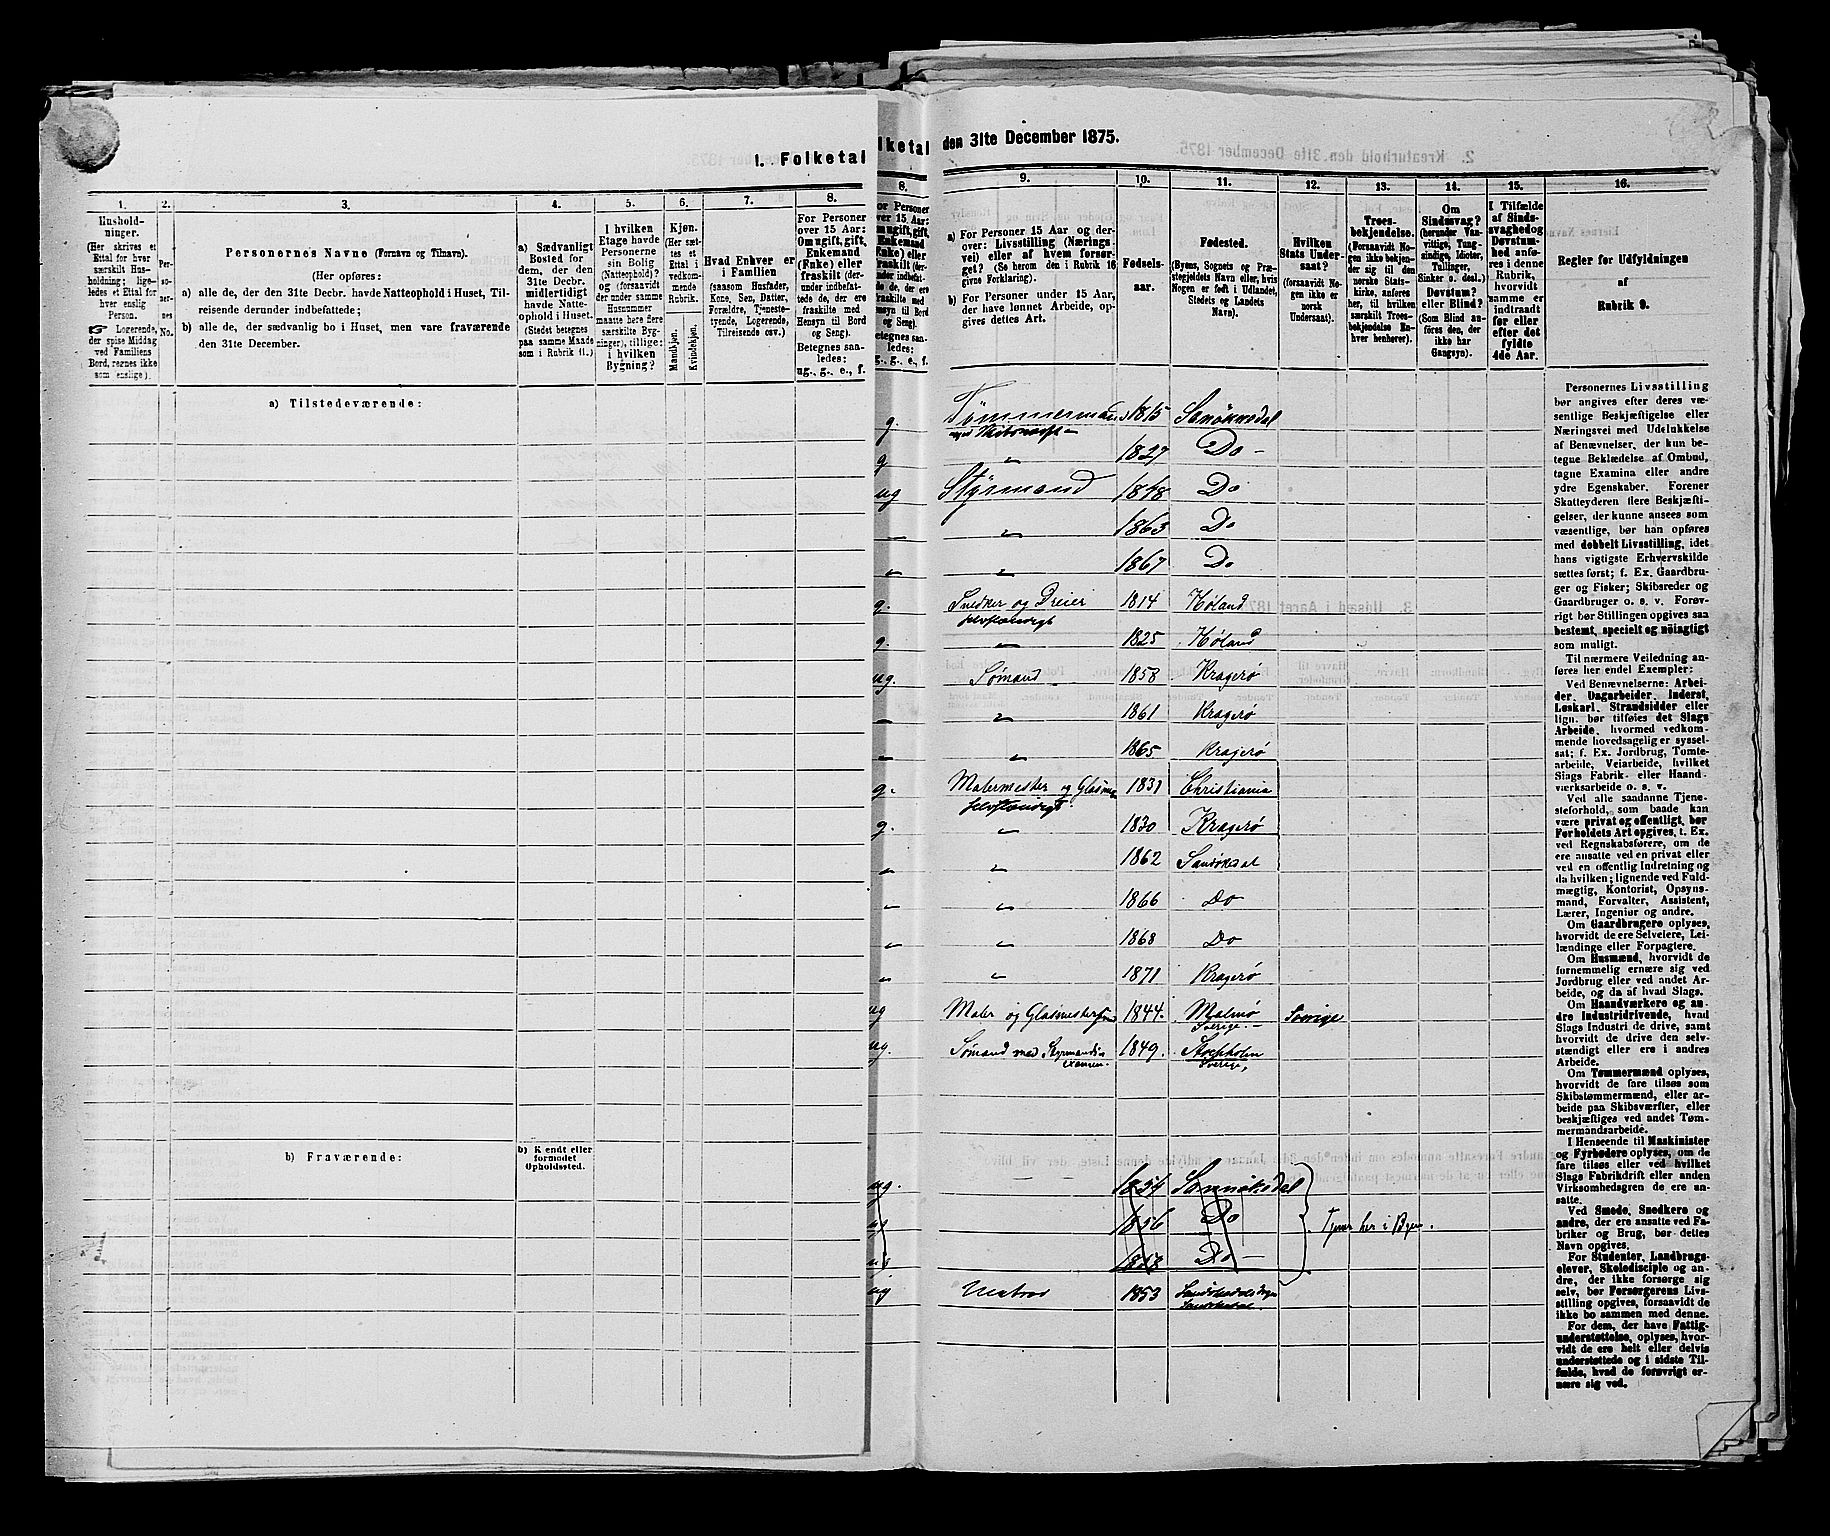 1. Folketal
lketal
den 31te December 1875.
1.
2.
3.
4.
5.
6.
7.
8.
8.
9.
10.
11.
12.
13.
14.
15.
16.
Hushold-
ninger.
(Her skrives et
Ettal for hver
særskilt Hus-
holdning; lige-
ledes et Ettal for
hver enslig
Person.
☞ Logerende,
der spise Middag
ved Familiens
Bord, regnes ikke
som enslige).
Per-
so-
ner-
nes
No.
Personernes Navne (Fornavn og Tilnavn).
(Her opføres:
a) alle de, der den 31te Decbr. havde Natteophold i Huset, Til-
reisende derunder indbefattede;
b) alle de, der sædvanlig bo i Huset, men vare fraværende
den 31te December.
a) Sædvanligt
Bosted for
dem, der den
31te Decbr.
midlertidigt
havde Natte-
ophold i Huset.
(Stedst betegnes
paa samme Maade
som i Rubrik 11.)
I hvilken
Etage havde
Personerne
sin Bolig
(Natteophold)?
og (forsaavidt
der under samme
Husnummer
maatte høre flere
særskilte Byg-
ninger), tillige:
i hvilken
Bygning?
Kjøn.
(Her sæt-
tes et
Ettal i
vedkom-
mende
Rubrik.
Mandkjøn.
Kvindekjøn.
Hvad Enhver er
i Familien
(saasom Husfader,
Kone, Søn, Datter,
Forældre, Tjeneste-
tyende, Logerende,
Tilreisende osv.)
For Personer
over 15 Aar:
Om ugift, gift,
Enkemand
(Enke) eller
fraskilt (der-
under indbefat-
tede de, der ere
fraskilte med
Hensyn til Bord
og Seng).
Betegnes saa-
ledes:
ug., g., e., f.
or Personer
over 15 Aar:
m ugift, gift,
Enkemand
(Enke) eller
fraskilt (der-
under indbefat-
tede de, der ere
fraskilte med
Hensyn til Bord
og Seng).
Betegnes saa-
ledes:
g., g., e., f.
a) For Personer 15 Aar og der-
over: Livsstilling (Nærings
vei) eller af hvem forsør-
get? (Se herom den i Rubrik 16
givne Forklaring).
b) For Personer under 15 Aar,
der have lønnet Arbeide, op-
gives dettes Art.
Fødsels-
aar.
Fødested.
(Byens, Sognets og Præ-
stegjeldets Navn eller, hvis
Nogen er født i Udlandet,
Stedets og Landets
Navn).
Hvilken
Stats Under-
saat?
(forsaavidt No-
gen ikke er
norsk
Undersaat).
Troes-
bekjendelse.
(Forsaavidt No-
gen ikke bekjen-
der sig til den
norske Stats-
kirke, anføres
her, til hvilken
særskilt Troes-
bekjendelse En-
hver henhører).
Om
Sindssvag?
(herunder Van-
vittige, Tung-
sindige, Idioter,
Tullinger,
Sinker o. desl.)
Døvstum?
eller Blind?
(Som Blind an-
føres den, der
ikke har
Gangsyn).
I Tilfælde
af Sinds-
svaghed og
Døvstum-
hed anfø-
res i denne
Rubrik,
hvorvidt
samme er
indtraadt
før eller
efter det
fyldte
4de Aar.
Regler for Udfyldningen
af
Rubrik 9.
a) Tilstedeværende:
g. Tømmermand 1815 Sanøkedal
g „ 1827 Do –
ug Styrmand 1848 Do
„ „ 1863 Do
„ „ 1867 Do
g. Snedker og Dreier 1814 Høland
selvstændigt
g. „ 1825 Høland
ug. Sømand 1858 Kragerø
„ „ 1861 Kragerø
„ „ 1865 Kragerø
g. Malermester og Glasme 1831 Christiania
selvstændigt
g. „ 1830 Kragerø
„ „ 1862 Sanøkedal
„ „ 1866 Do
„ „ 1868 Do
„ „ 1871 Kragerø
ug Maler og Glasmestersvend 1844. Malmø Sverige
Sverige. –
ug. Sømand med Styrmands 1849. Stockholm
examen. Sverige,
b) Fraværende:
b) Kjendt eller
formodet
Opholdssted.
ug. 1854 Sannøkedal
ug 1856 Do
Tjener her i Byen.
Do –
ug Matros 1853
Personernes Livsstilling
bør angives efter deres væ-
sentlige Beskjæftigelse eller
Næringsvei med Udelukkelse
af Benævnelser, der kun be-
tegne Beklædelse af Ombud,
tagne Examina eller andre
ydre Egenskaber. Forener
Skatteyderen flere Beskjæfti-
gelser, der kunne ansees som
væsentlige, bør han opføres
med dobbelt Livsstilling, idet
hans vigtigste Erhvervskilde
sættes først; f. Ex. Gaardbru-
ger og Fisker; Skibsreder og
Gaardbruger o. s. v. Forøv-
rigt bør Stillingen opgives saa
bestemt, specielt og nøiagtigt
som muligt.
Til nærmere Veiledning an-
føres her endel Exempler:
Ved Benævnelserne: Arbei-
der, Dagarbeider, Inderst,
Løskarl, Strandsidder eller
lign. bør tilføies det Slags
Arbeide, hvormed vedkom-
mende hovedsagelig er syssel-
sat; f. Ex. Jordbrug, Tomte-
arbeide, Veiarbeide, hvilket
Slags Fabrik- eller Haand-
værksarbeide o. s. v.
Ved alle saadanne Tjene-
steforhold, som baade kan
være privat og offentligt, bør
Forholdets Art opgives, t. Ex.
ved Regnskabsførere, om de
ere ansatte ved en privat eller
ved en offentlig Indretning og
da hvilken; lignende ved Fuld-
mægtig, Kontorist, Opsyns-
mand, Forvalter, Assistent,
Lærer, Ingeniør og andre.
Om Gaardbrugere oplyses,
hvorvidt de ere Selveiere, Lei-
lændinge eller Forpagtere.
Om Husmænd, hvorvidt de
fornemmelig ernære sig ved
Jordbrug eller ved andet Ar-
beide, og da af hvad Slags.
Om Haandværkere og an-
dre Industridrivende, hvad
Slags Industri de drive, samt
hvorvidt de drive den selv-
stændigt eller ere i andres
Arbeide.
Om Tømmermænd oplyses,
hvorvidt de fare tilsøs som
Skibstømmermænd, eller ar-
beide paa Skibsværfter, eller
beskjæftiges ved andet Tøm-
mermandsarbeide.
I Henseende til Maskinister
og Fyrbødere oplyses, om de
fare tilsøs eller ved hvilket
Slags Fabrikdrift eller anden
Virksomhedsgren de ere an-
satte.
Ved Smede, Snedkere og
andre, der ere ansatte ved Fa-
briker og Brug, bør dettes
Navn opgives.
For Studenter, Landbrugs-
elever, Skoledisciple og an-
dre, der ikke forsørge sig
selv, bør Forsørgerens Livs-
stilling opgives, forsaavidt de
ikke bo sammen med denne.
For dem, der have Fattig-
understøttelse, oplyses, hvor-
vidt de ere helt eller delvis
understøttede og i sidste Til-
fælde, hvad de forøvrigt er-
nære sig ved.